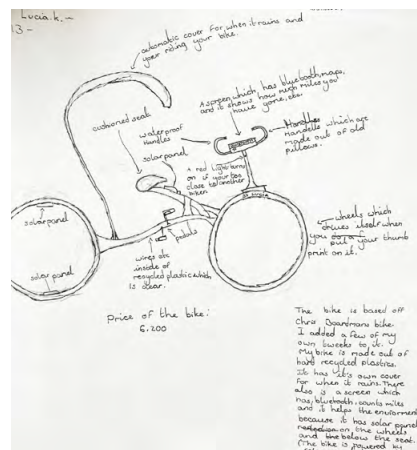 Lucia.k.-
13-
automatic cover for when it rains and
your riding your bike.
A screen which, has bluetooth, maps,
and it shows how much miles you
have gone, etc.
cushioned seat
waterproof
handles
solar panel
Handles which are
made out of old
pillows.
A red light turns
on if your too
close to another
biker
solar panel
solar panel
pedals
wires are
inside of
recycled plastic which
is clear.
wheels which
drives itself when
you put your thumb
print on it.
Price of the bike:
6.200
The bike is based off
Chris Boardmans bike.
I added a few of my
own tweeks to it.
My bike is made out of
hard recycled plastics.
It has it's own cover
for when it rains. There
also is a screen which
has, bluetooth, counts miles
and it helps the enviroment
because it has solar panel
on the wheels
and below the seat.
(The bike is powered by